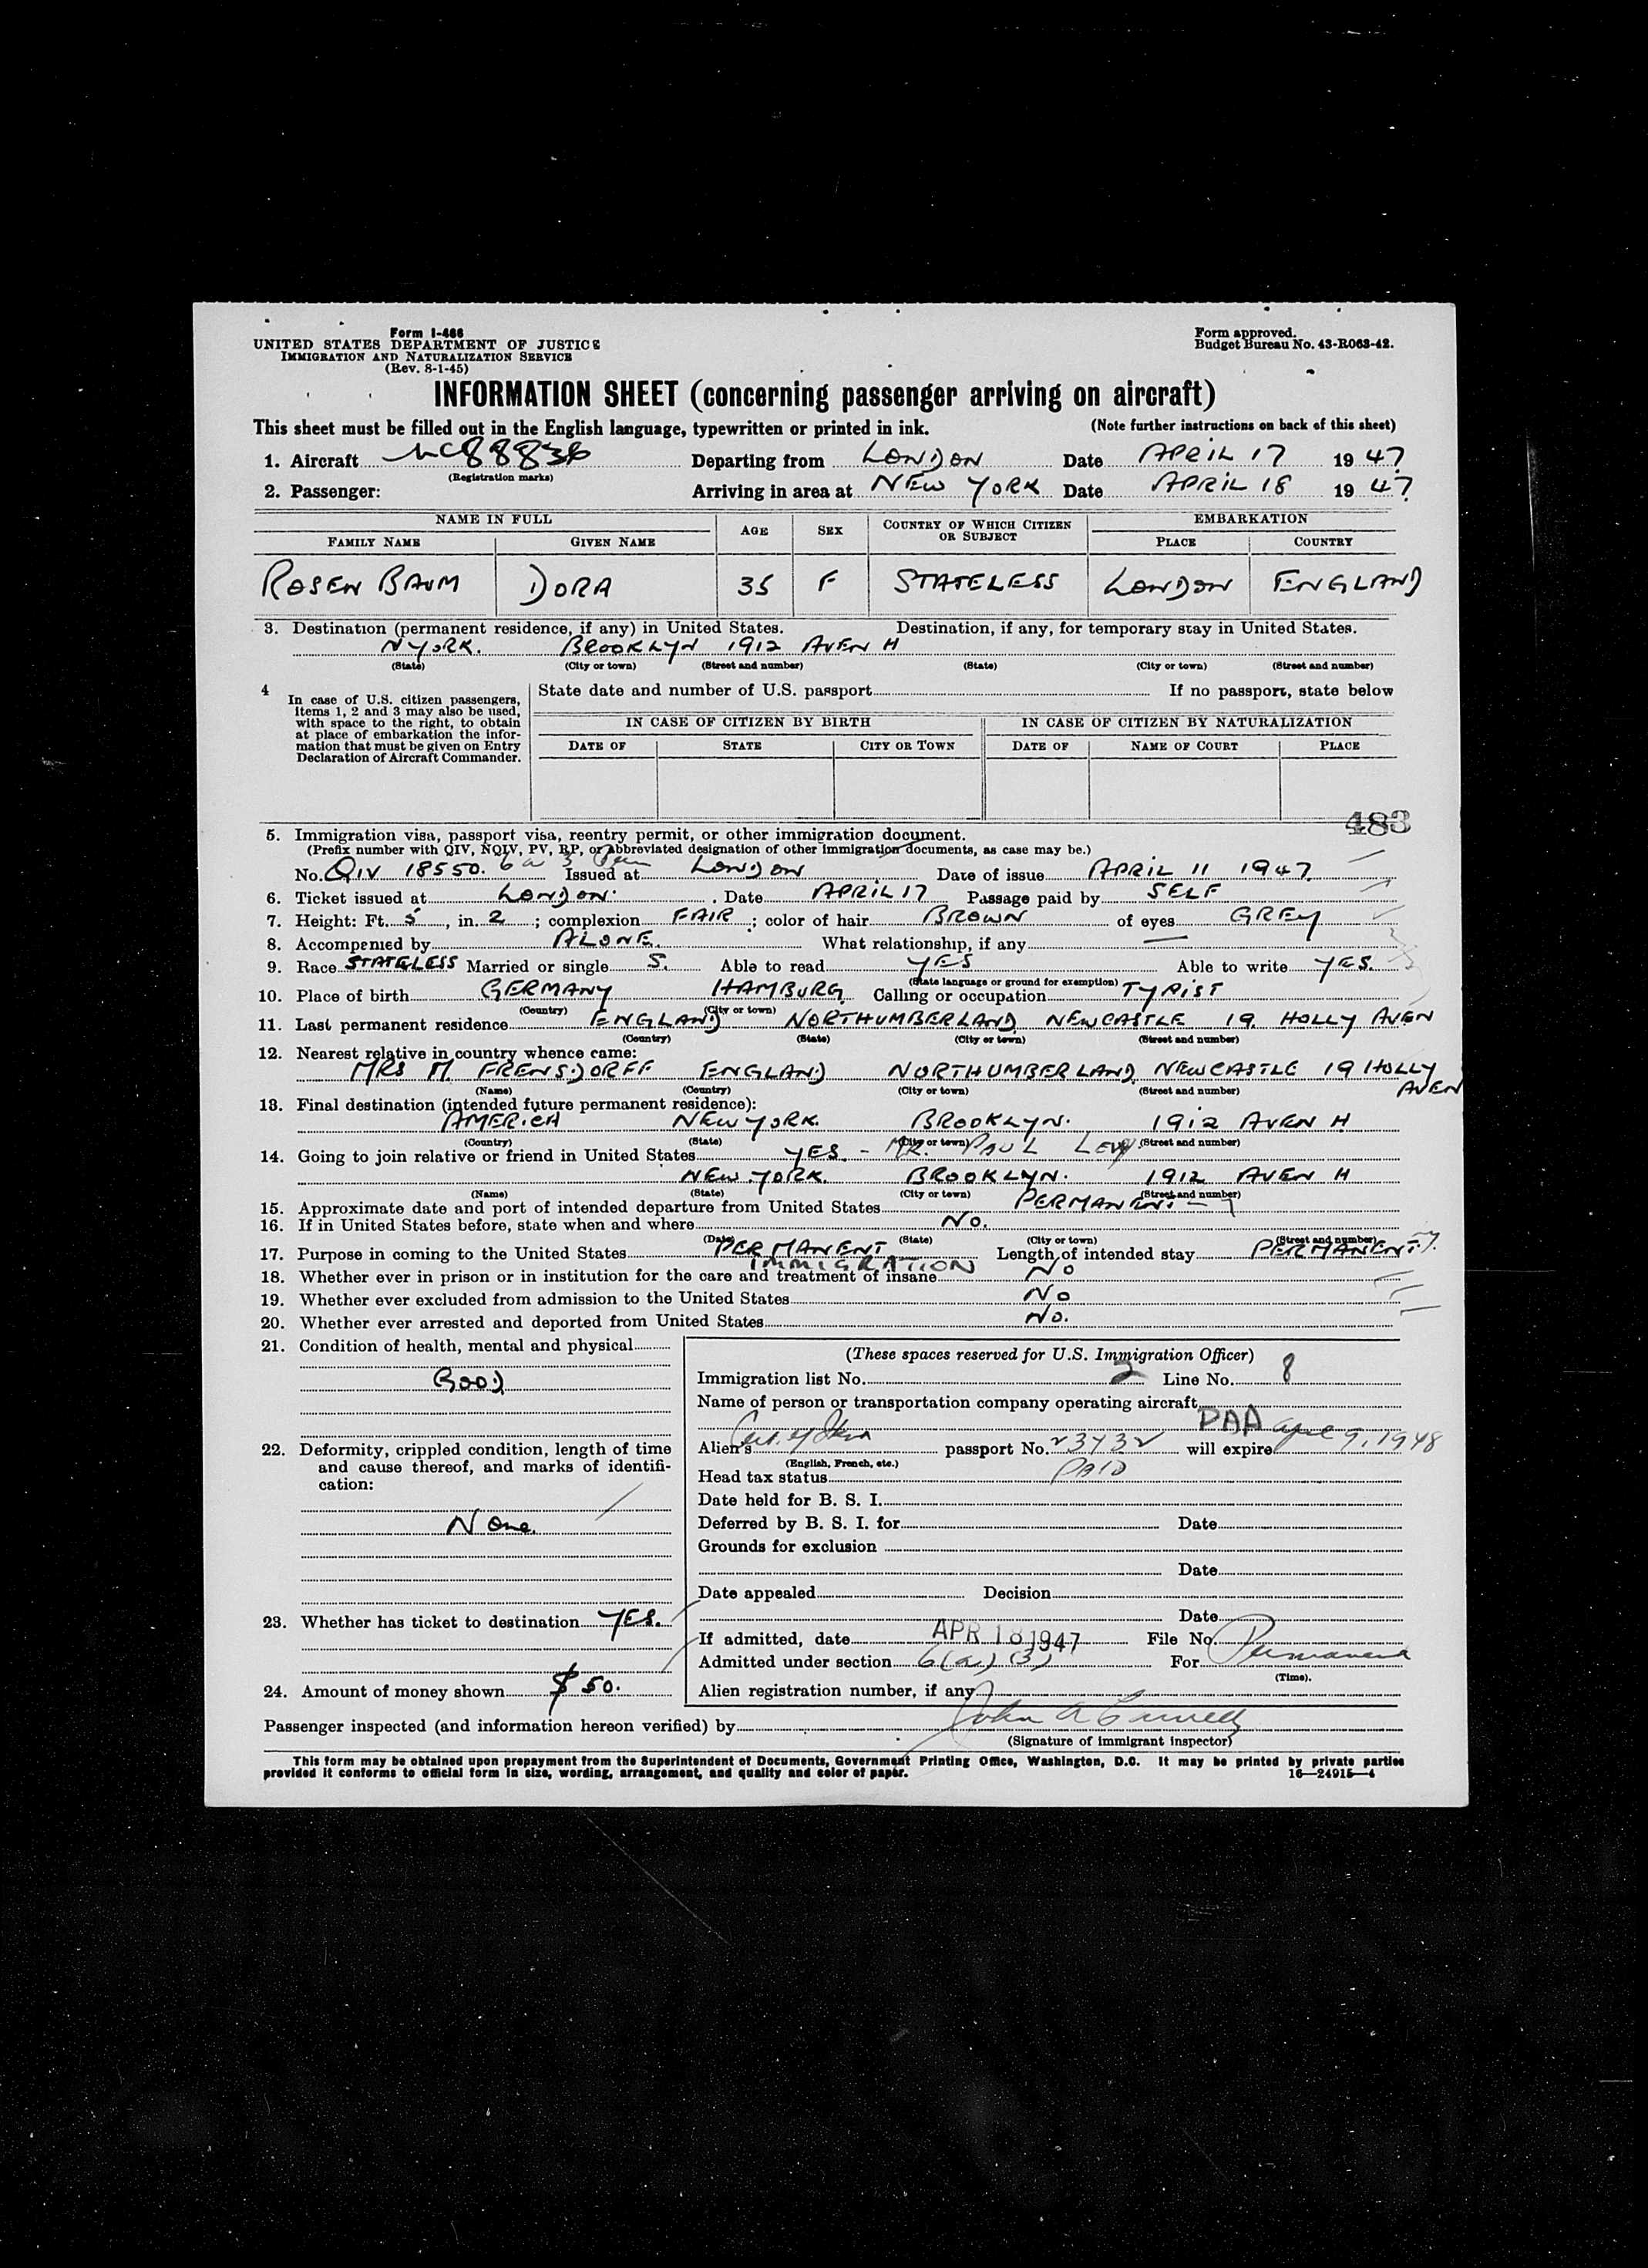 Form I-466
UNITED STATES DEPARTMENT OF JUSTICE
IMMIGRATION AND NATURALIZATION SERVICE
(Rev. 8-1-45)
Form approved.
Budget Bureau No. 43-R063-42.
INFORMATION SHEET (concerning passenger arriving on aircraft)
This sheet must be filled out in the English language, typewritten or printed in ink. (Note further instructions on back of this sheet)
1. Aircraft NC88836 Departing from LONDON Date APRIL 17 1947
(Registration marks)
2. Passenger: Arriving in area at NEW YORK Date APRIL 18 1947
NAME IN FULL AGE SEX COUNTRY OF WHICH CITIZEN OR SUBJECT EMBARKATION
FAMILY NAME GIVEN NAME PLACE COUNTRY
ROSEN BAUM DORA 35 F STATELESS LONDON ENGLAND
3. Destination (permanent residence, if any) in United States. Destination, if any, for temporary stay in United States.
N YORK. BROOKLYN 1912 AVEN H
(State) (City or town) (Street and number) (State) (City or town) (Street and number)
4 In case of U.S. citizen passengers, items 1, 2 and 3 may also be used, with space to the right, to obtain at place of embarkation the information that must be given on Entry Declaration of Aircraft Commander.
State date and number of U.S. passport If no passport, state below
IN CASE OF CITIZEN BY BIRTH IN CASE OF CITIZEN BY NATURALIZATION
DATE OF STATE CITY OR TOWN DATE OF NAME OF COURT PLACE
483
5. Immigration visa, passport visa, reentry permit, or other immigration document.
(Prefix number with QIV, NQIV, PV, RP, or abbreviated designation of other immigration documents, as case may be.)
No. QIV 18550. 6 a 3 Issued at LONDON Date of issue APRIL 11 1947
6. Ticket issued at LONDON. Date APRIL 17 Passage paid by SELF
7. Height: Ft. 5, in. 2; complexion FAIR; color of hair BROWN of eyes GREY
8. Accompenied by ALONE. What relationship, if any —
9. Race STATELESS Married or single S. Able to read YES Able to write YES.
(State language or ground for exemption)
10. Place of birth GERMANY HAMBURG Calling or occupation TYPIST
(Country) (City or town)
11. Last permanent residence ENGLAND NORTHUMBERLAND NEWCASTLE 19. HOLLY AVEN
(Country) (State) (City or town) (Street and number)
12. Nearest relative in country whence came:
MRS M FRENSDORFF ENGLAND NORTHUMBERLAND NEWCASTLE 19 HOLLY AVEN
(Name) (Country) (City or town) (Street and number)
13. Final destination (intended future permanent residence):
AMERICA NEW YORK. BROOKLYN. 1912 AVEN H
(Country) (State) (City or town) (Street and number)
14. Going to join relative or friend in United States YES - MR. PAUL LEVY
NEW YORK. BROOKLYN. 1912 AVEN H
(Name) (State) (City or town) (Street and number)
15. Approximate date and port of intended departure from United States PERMANENT
16. If in United States before, state when and where No.
(Date) (State) (City or town) (Street and number)
17. Purpose in coming to the United States PERMANENT IMMIGRATION Length of intended stay PERMANENTY.
18. Whether ever in prison or in institution for the care and treatment of insane No
19. Whether ever excluded from admission to the United States No
20. Whether ever arrested and deported from United States No.
21. Condition of health, mental and physical
GOOD
22. Deformity, crippled condition, length of time and cause thereof, and marks of identification:
None.
23. Whether has ticket to destination YES.
24. Amount of money shown $50.
(These spaces reserved for U.S. Immigration Officer)
Immigration list No. 2 Line No. 8
Name of person or transportation company operating aircraft
PAA
Alien's passport No. 23432 will expire April 9, 1948
(English, French, etc.)
Head tax status PAID
Date held for B. S. I.
Deferred by B. S. I. for Date
Grounds for exclusion
Date
Date appealed Decision
Date
If admitted, date APR 18 1947 File No.
Admitted under section 6(a)(3) For Permanent
(Time).
Alien registration number, if any
Passenger inspected (and information hereon verified) by John A
(Signature of immigrant inspector)
This form may be obtained upon prepayment from the Superintendent of Documents, Government Printing Office, Washington, D.C. It may be printed by private parties
provided it conforms to official form in size, wording, arrangement, and quality and color of paper. 16—24915-4